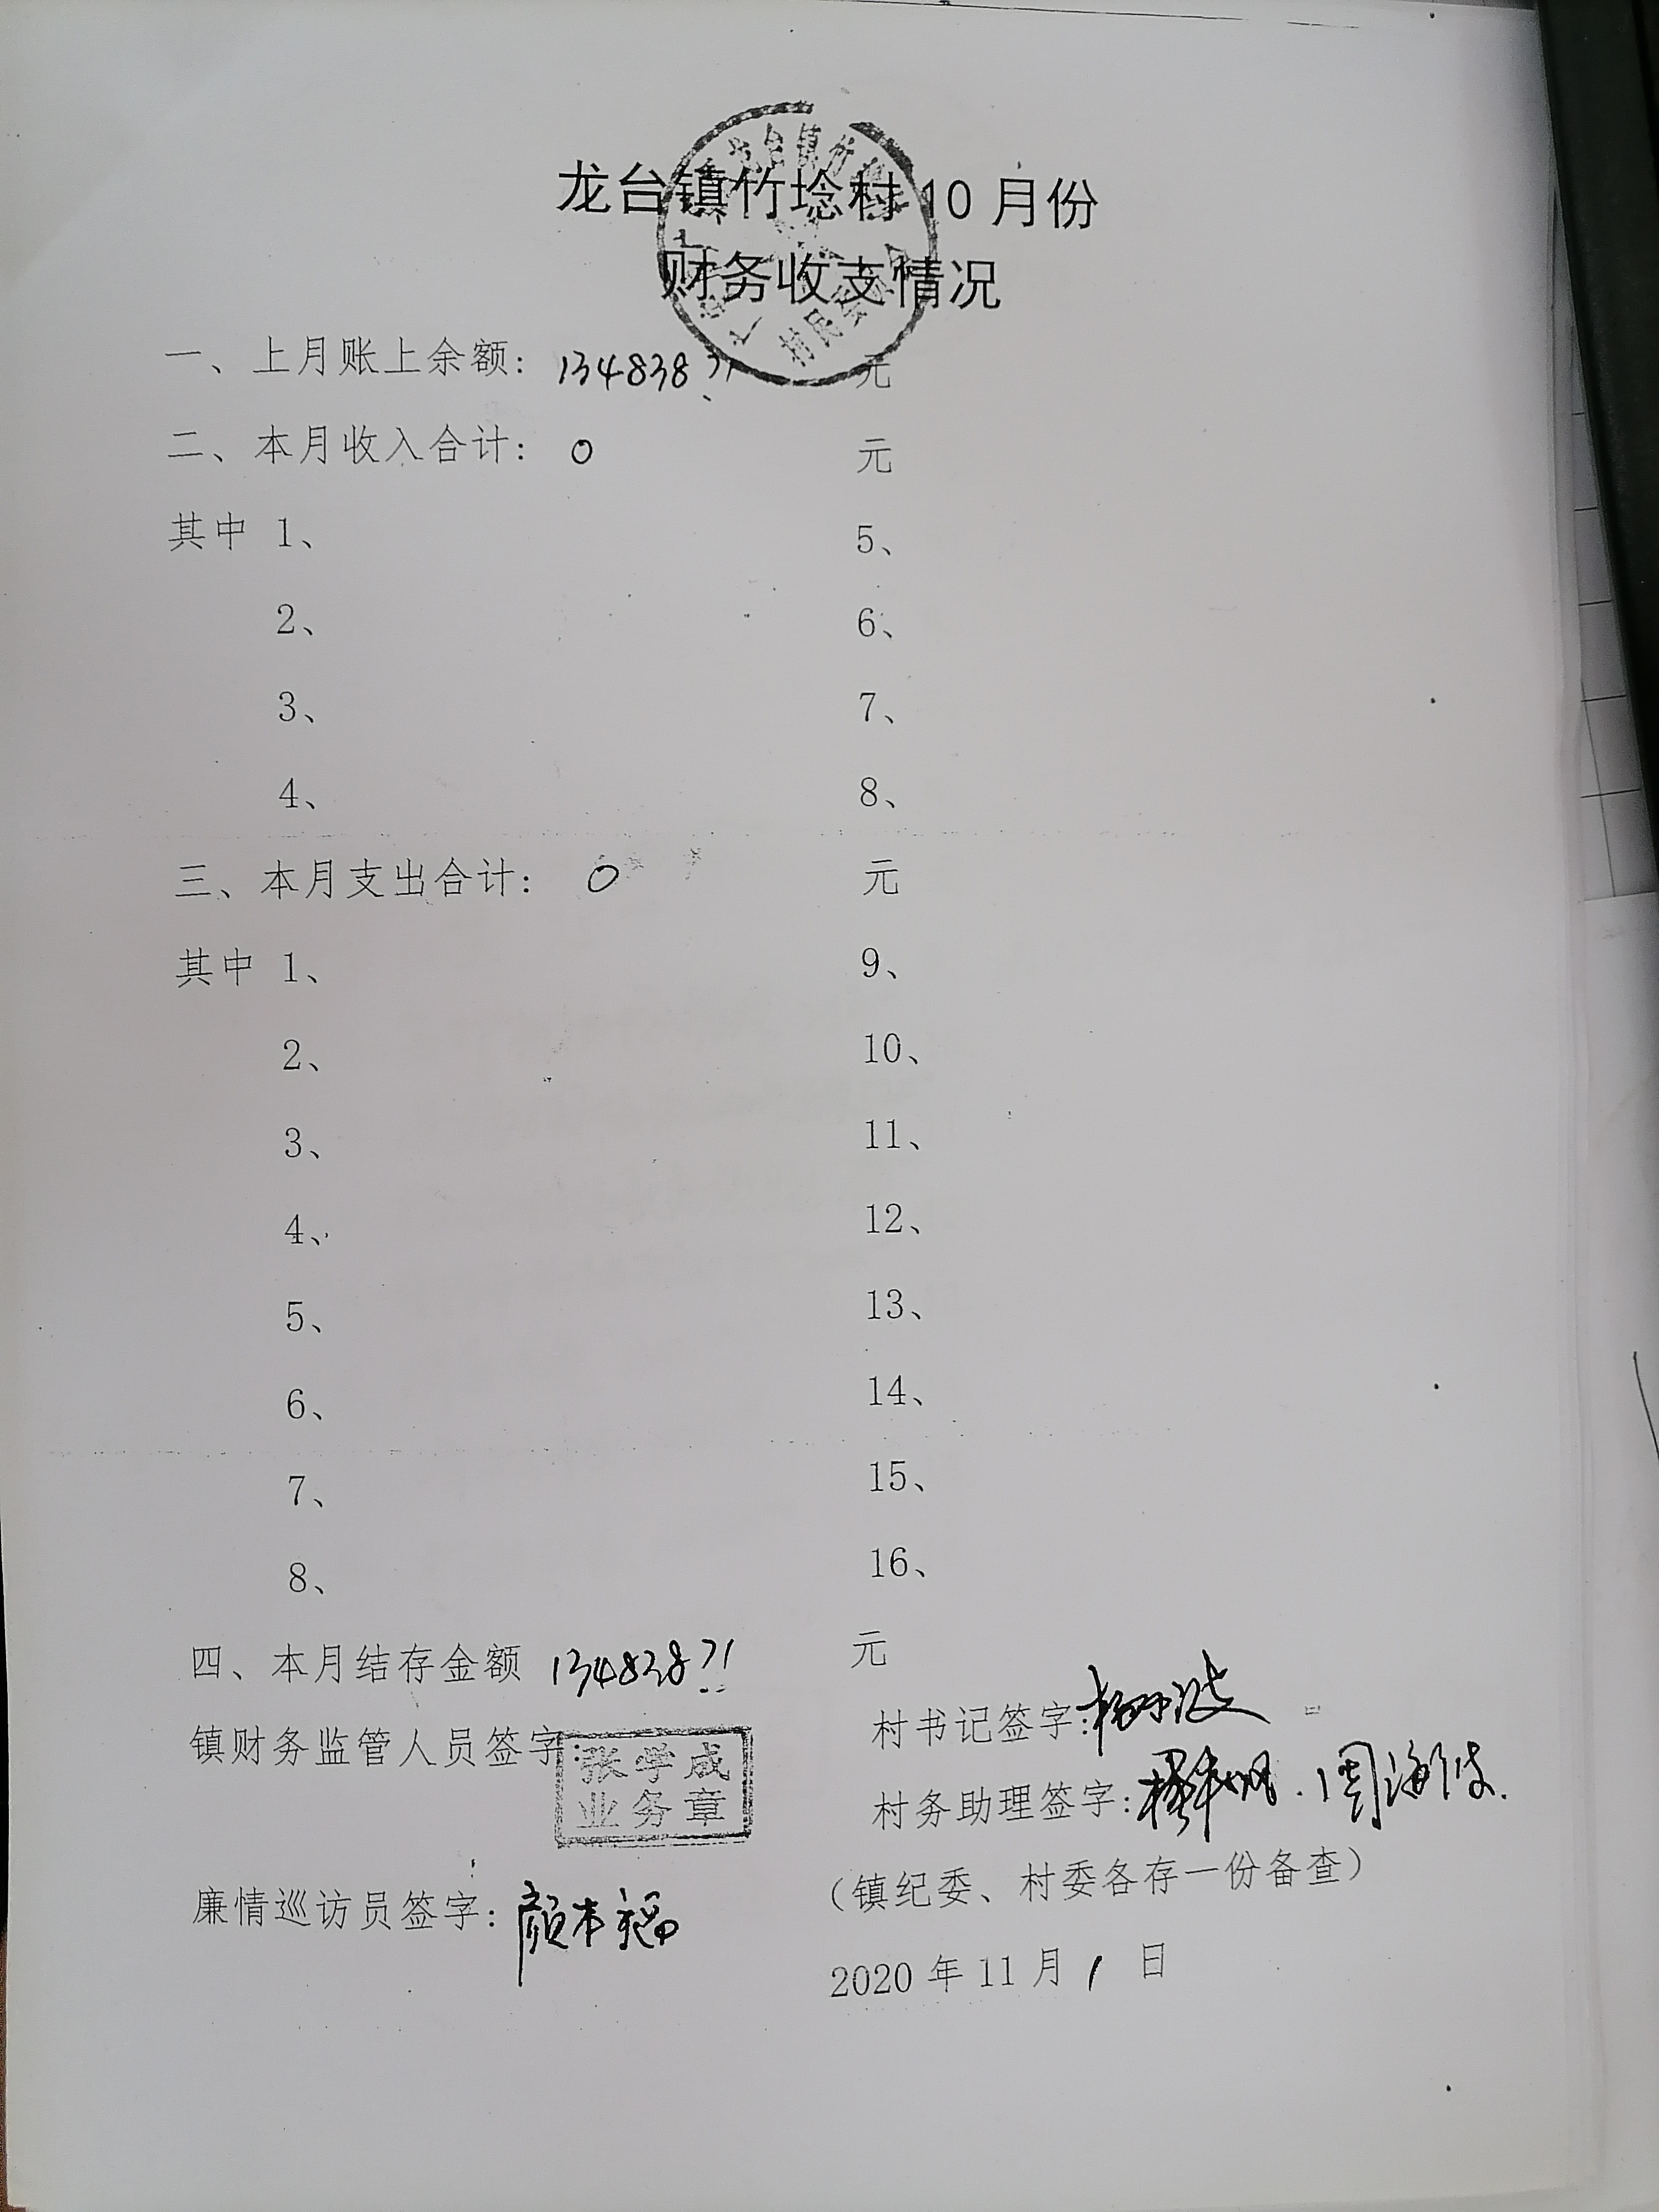 龙台镇竹埝村10月份
财务收支情况
村民委员会
一、上月账上余额：134838.71 元
二、本月收入合计：0 元
其中 1、 5、
2、 6、
3、 7、
4、 8、
三、本月支出合计：0 元
其中 1、 9、
2、 10、
3、 11、
4、 12、
5、 13、
6、 14、
7、 15、
8、 16、
四、本月结存金额 134838.71 元
镇财务监管人员签字： 村书记签字:
张学成
业务章
村务助理签字: 周海波.
（镇纪委、村委各存一份备查）
廉情巡访员签字：颜本福
2020年11月1日